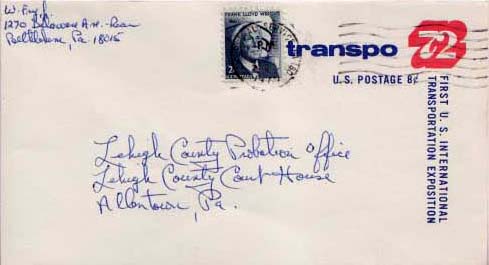 W. Fry Jr.
1270 Delaware Ave. - Rear
Bethlehem, Pa. 18015
FRANK LLOYD WRIGHT
2¢
transpo 72
U.S. POSTAGE 8¢
FIRST U.S. INTERNATIONAL
TRANSPORTATION EXPOSITION
Lehigh County Probation Office
Lehigh County Court House
Allentown, Pa.